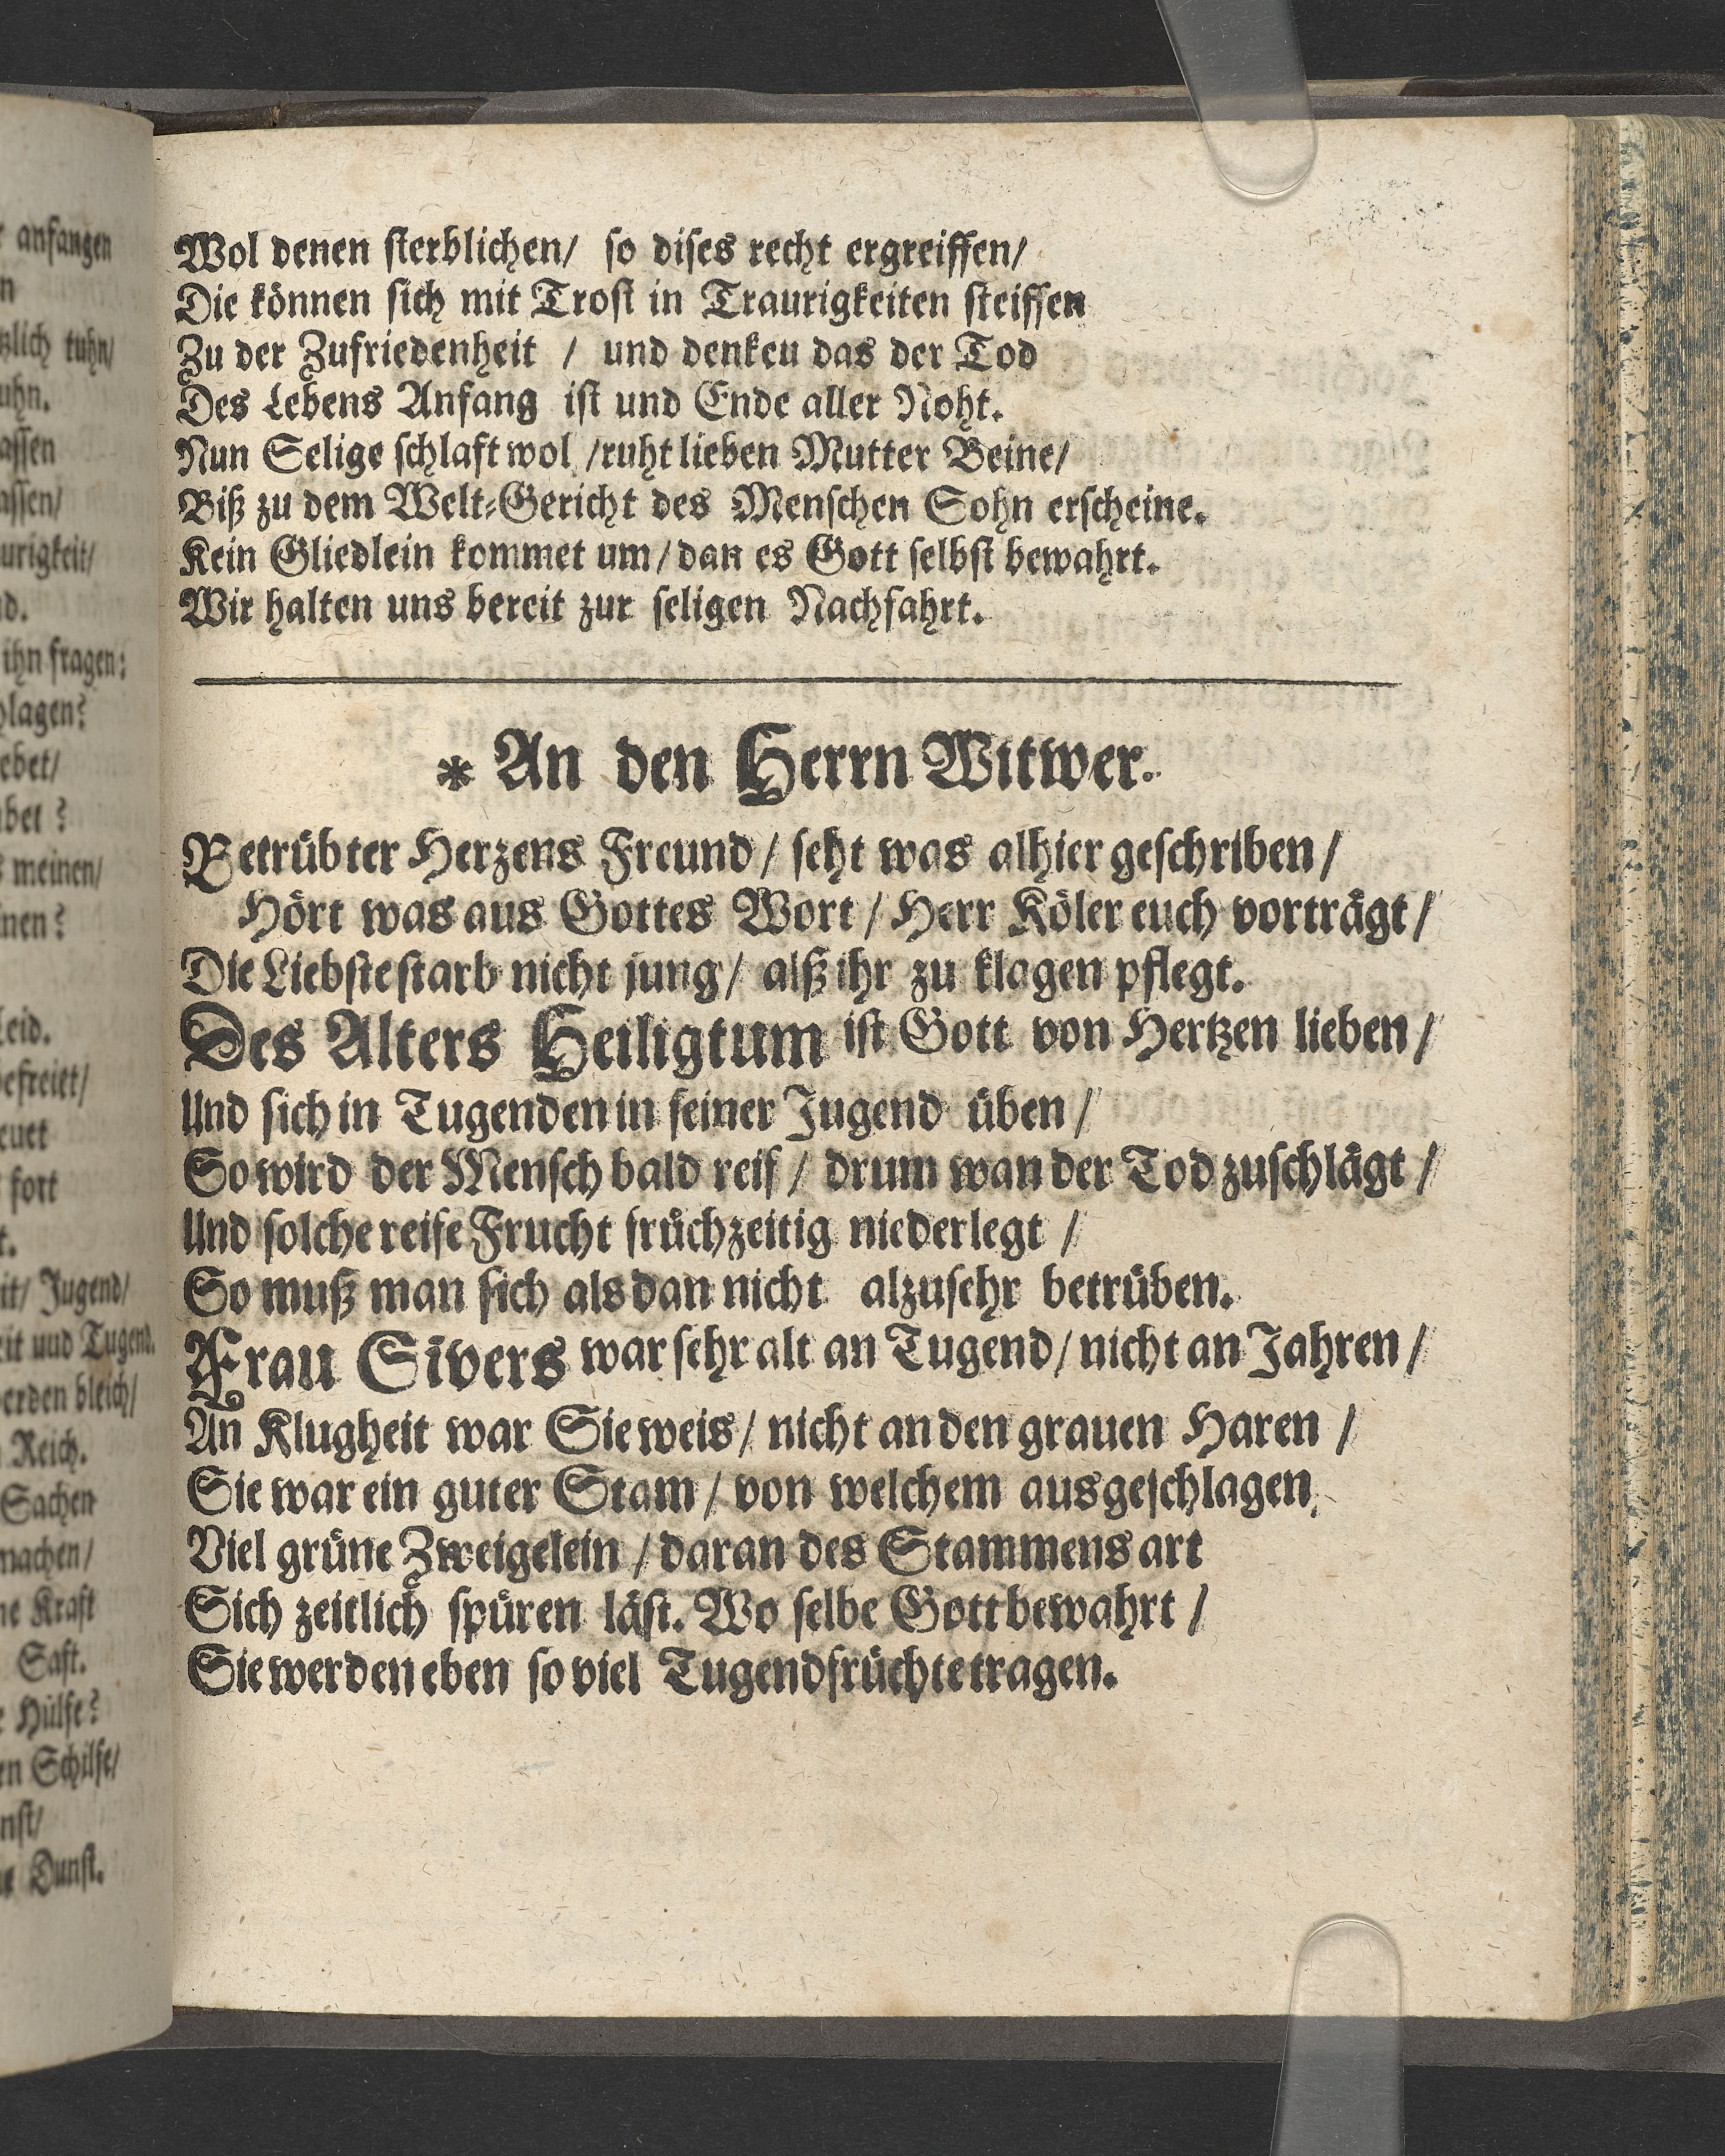 anfangen
n
zlich tuhn/
uhn.
assen
assen/
urigkeit/
nd.
ihn fragen:
hlagen?
ebet/
abet?
s meinen/
inen?
Leid.
befreiet/
euet
fort
t.
it/ Jugend/
eit und Tugend.
werden bleich/
Reich.
Sachen
machen/
ne Kraft
Saft.
e Hülfe?
en Schilfe/
nst/
Dunst.
Wol denen ſterblichen/ ſo diſes recht ergreiffen/
Die können ſich mit Troſt in Traurigkeiten ſteiffen
Zu der Zufriedenheit / und denkeu das der Tod
Des Lebens Anfang iſt und Ende aller Noht.
Nun Selige ſchlaft wol /ruht lieben Mutter Beine/
Biß zu dem Welt-Gericht des Menſchen Sohn erſcheine.
Kein Gliedlein kommet um/ dan es Gott ſelbſt bewahrt.
Wir halten uns bereit zur ſeligen Nachfahrt.
* An den Herrn Witwer.
Betrübter Herzens Freund/ ſeht was alhier geſchriben/
Hört was aus Gottes Wort / Herr Köler euch vorträgt/
Die Liebſte ſtarb nicht jung/ alß ihr zu klagen pflegt.
Des Alters Heiligtum iſt Gott von Hertzen lieben/
Und ſich in Tugenden in ſeiner Jugend üben/
So wird der Menſch bald reif/ drum wan der Tod zuſchlägt/
Und ſolche reife Frucht früchzeitig niederlegt /
So muß man ſich als dan nicht alzuſehr betrüben.
Frau Sivers war ſehr alt an Tugend/ nicht an Jahren/
An Klugheit war Sie weis/ nicht an den grauen Haren /
Sie war ein guter Stam/ von welchem ausgeſchlagen,
Viel grüne Zweigelein / daran des Stammens art
Sich zeitlich ſpüren läſt. Wo ſelbe Gott bewahrt /
Sie werden eben ſo viel Tugendfrüchte tragen.